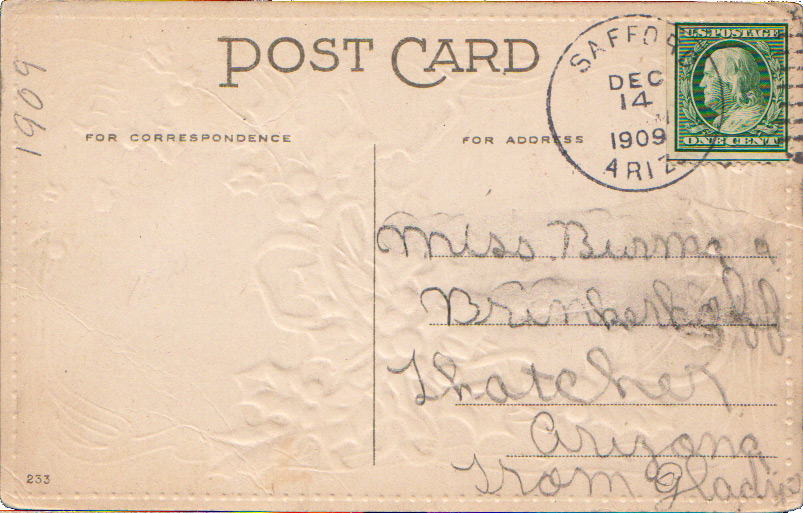 POST CARD
1909
FOR CORRESPONDENCE
FOR ADDRESS
SAFFORD
DEC
14
M
1909
ARIZ
U.S. POSTAGE
ONE CENT
Miss
Brinkerhoff
Thatcher
Arizona
From Gladis
233